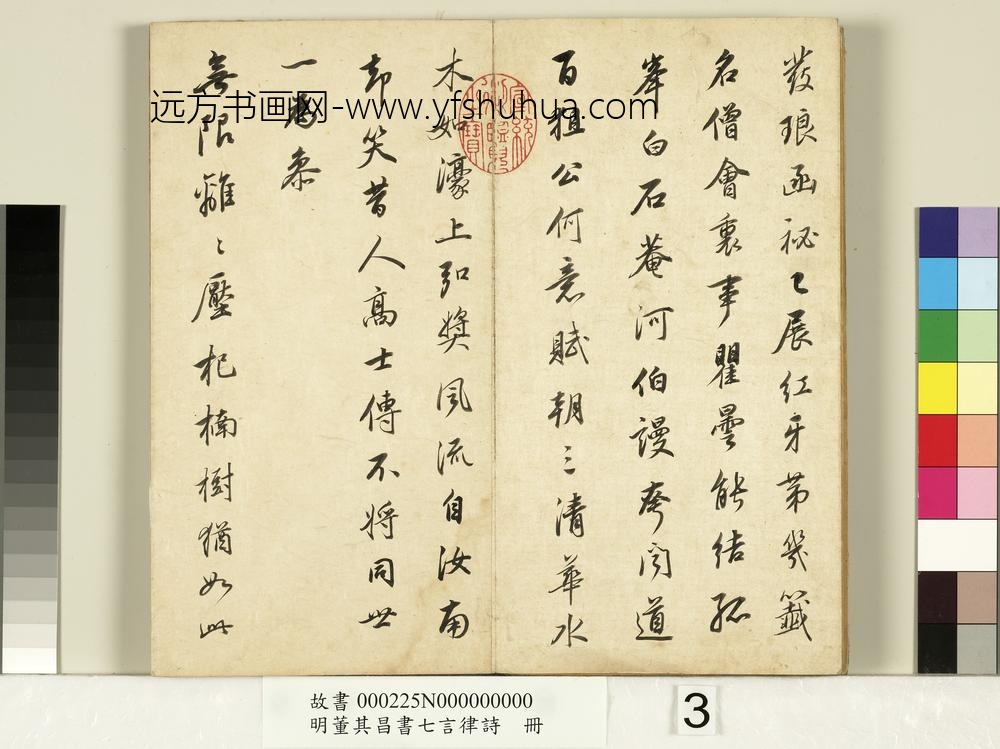 發琅函祕展紅牙第幾籤
名僧會裏事瞿曇能結孤
峯白石菴河伯謾夸聞道
百狙公何意賦朝三清華水
木如濠上弘獎風流自汝南
却笑昔人高士傳不將同世
一為參
無限離〻壓杞楠樹猶如此
远方书画网-www.yfshuhua.com
故書 000225N000000000
明董其昌書七言律詩 冊
3